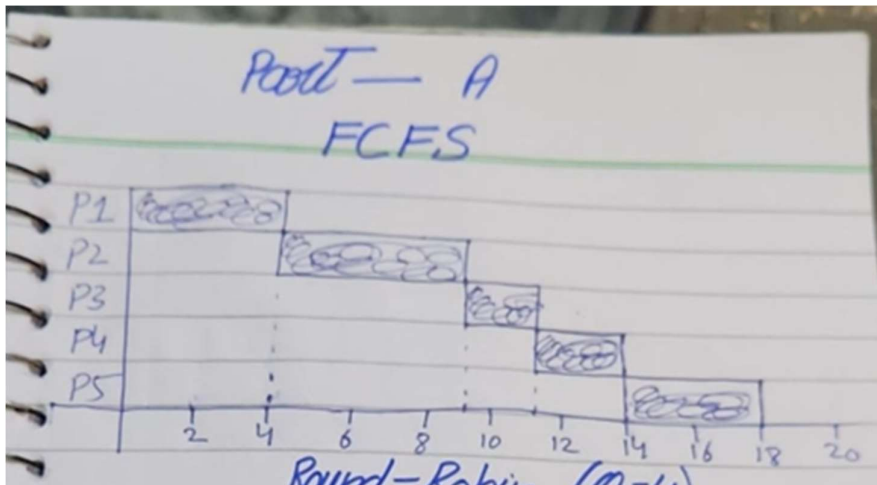 Part — A
FCFS
P1
P2
P3
P4
P5
2 4 6 8 10 12 14 16 18 20
Round-Robin